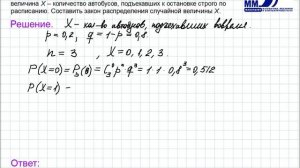 величина X – количество автобусов, подъехавших к остановке строго по
расписанию. Составить закон распределения случайной величины X.
ММ
Решение. X – кол-во автобусов, подъехавших вовремя.
p = 0,2, q = 1-p = 0,8
n = 3, X = 0, 1, 2, 3
P(X=0) = P₃(0) = C₃⁰ p⁰ q³ = 1·1·0,8³ = 0,512
P(X=1)
Ответ: